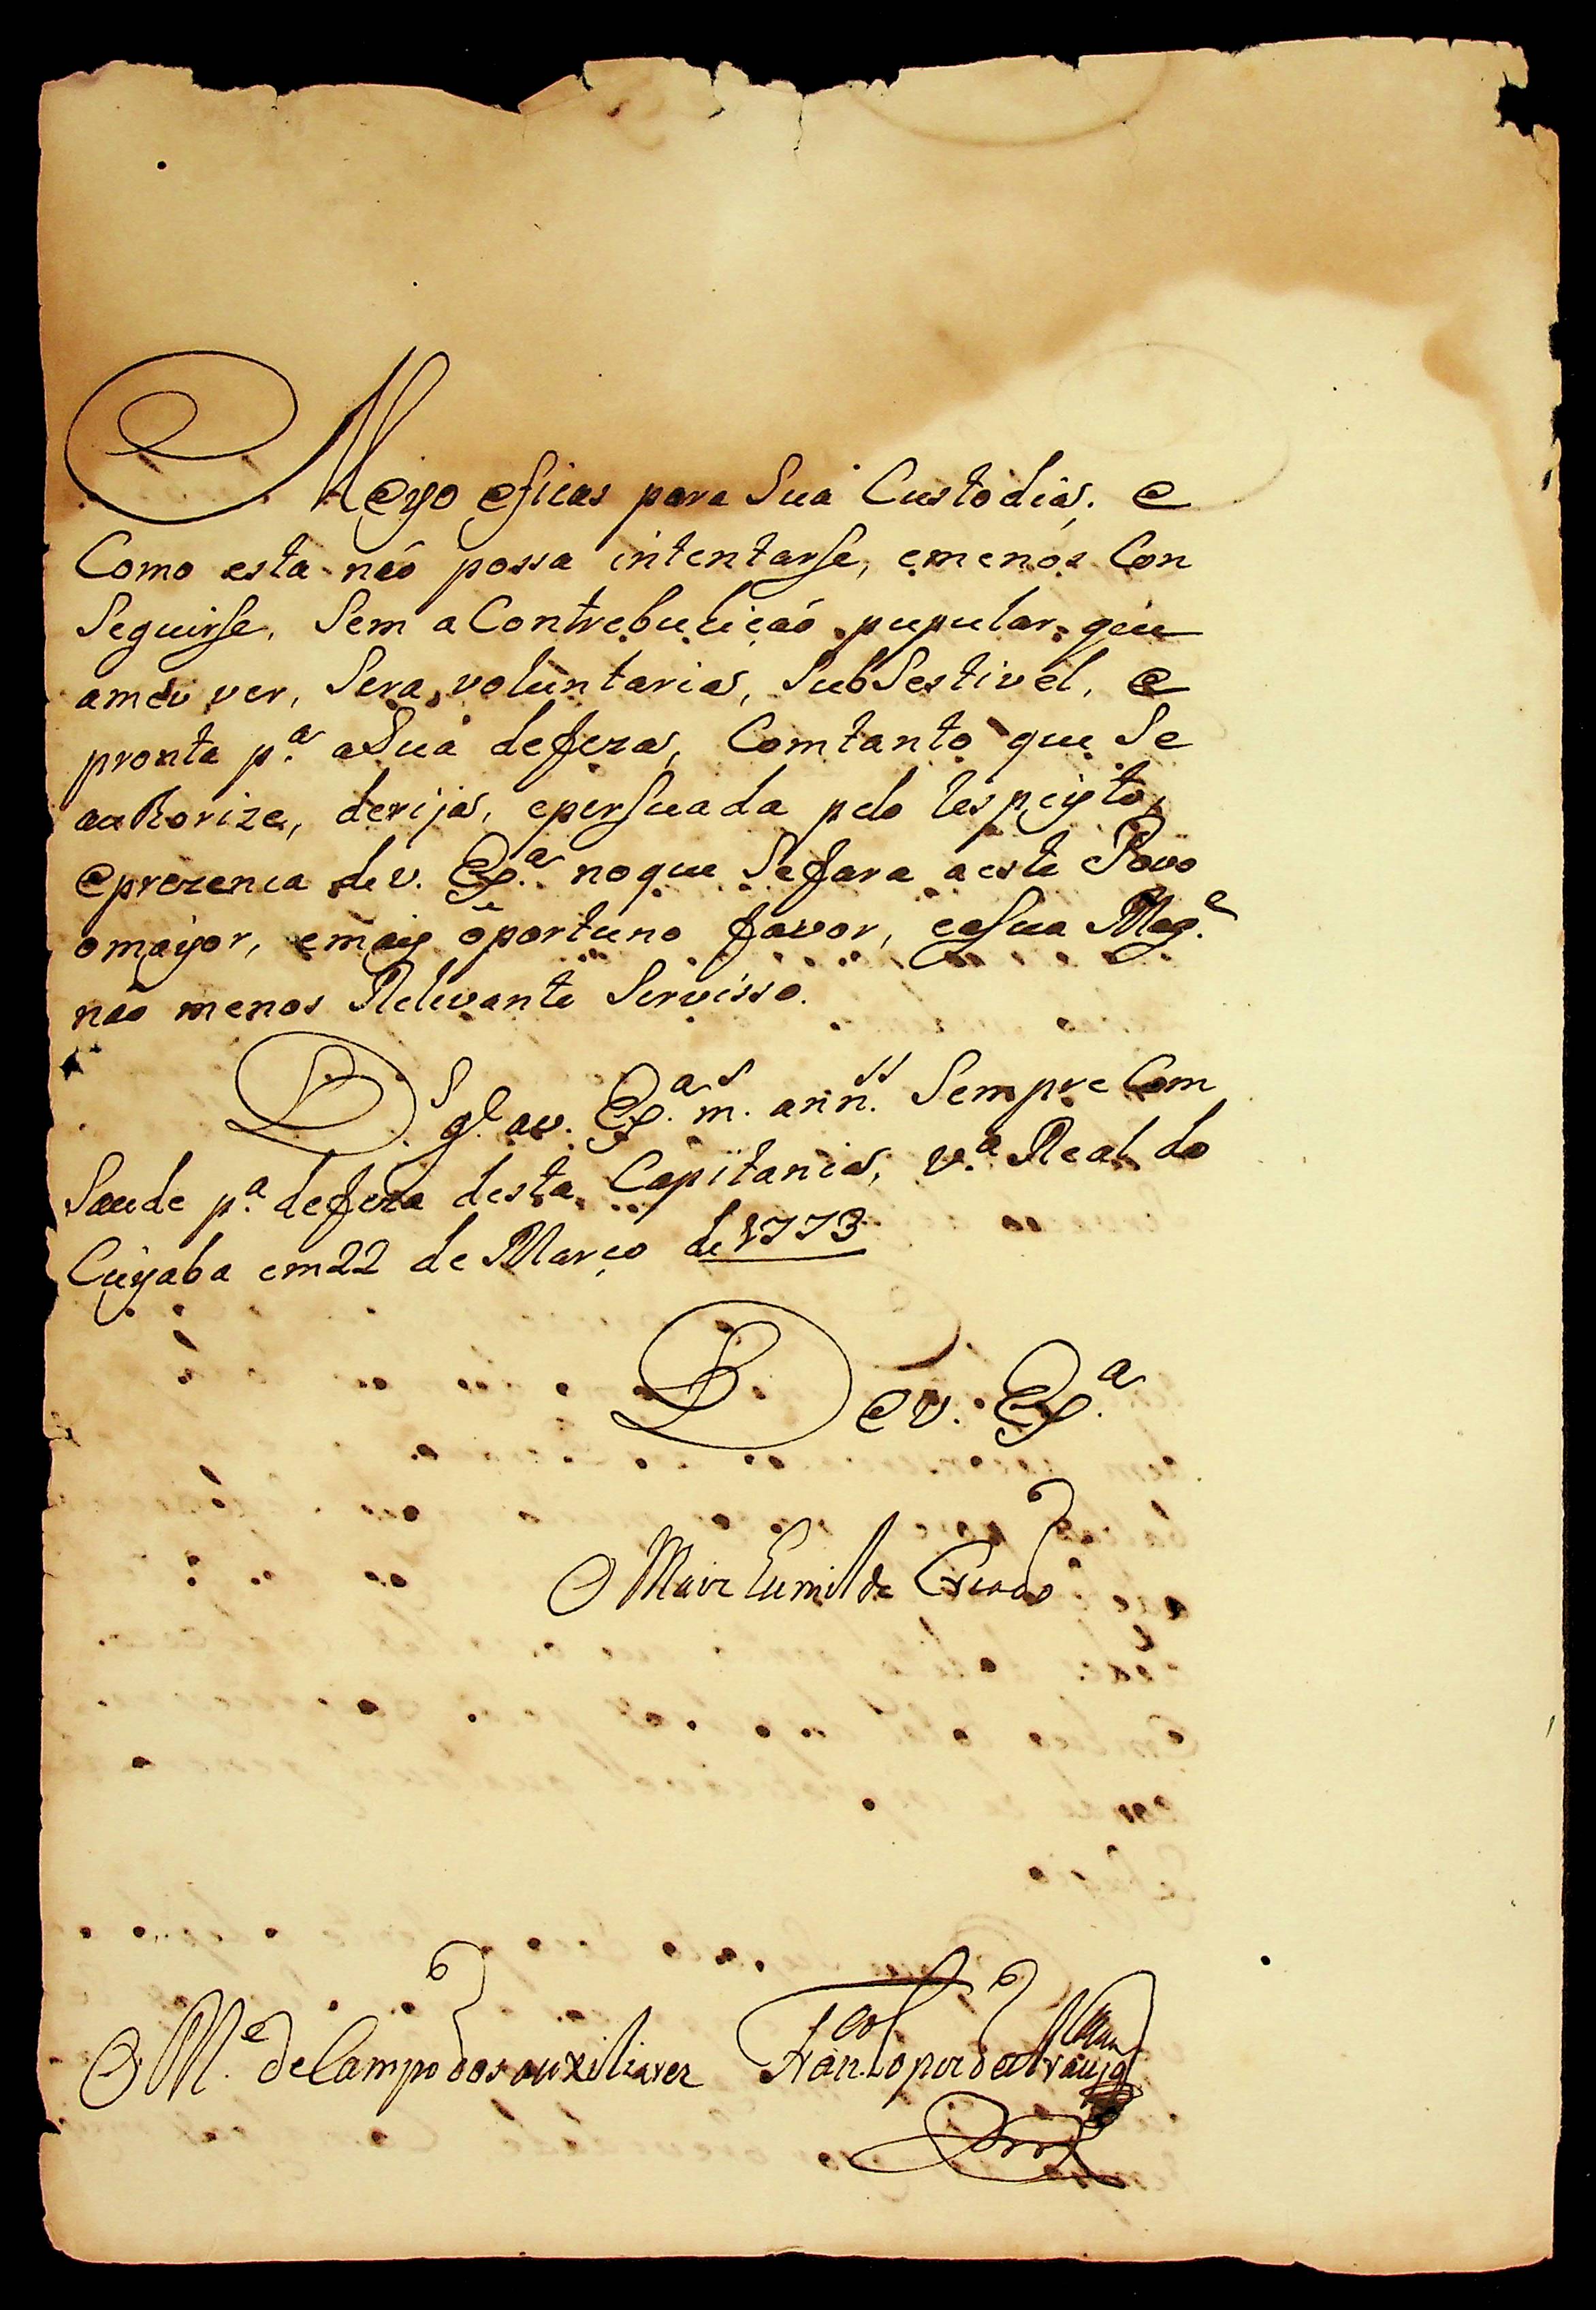 Meyo eficas para Sua Custodia, e
Como esta não possa intentarse, emenos Con
Seguirse, Sem a Contrebuiçaõ pupular, que
ameu ver, Sera voluntaria, SubSestivel, e
pronta p.ª aSua defeza, Comtanto que Se
authorize, derija, epersuada pelo respeyto,
eprezenca de v. Ex.ª noque Sefara aeste Povo
omayor, emais oportuno favor, easua Mag.e
não menos Relevante Servisso.
D.s g.e av. Ex.ª m.s ann.s Sempre Com
Saude p.ª defeza desta Capitania, V.ª Real do
Cuyaba em 22 de Março de 1773
De v. Ex.ª
O Maiz Humilde Creado
O M.e de Campo dos auxiliares
Ant.o Joze Pinto de Figueiredo